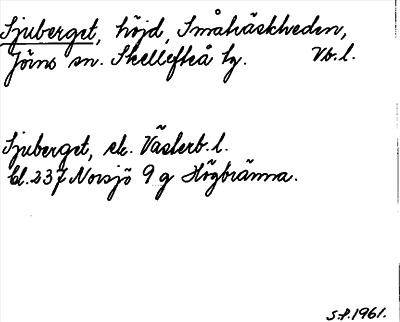 Sjuberget, höjd, Småträskheden,
Jörns sn. Skellefteå tg. Vb. l.
Sjuberget, ek. Västerb. l.
bl. 237 Norsjö 9 g Högbränna.
S.P. 1961.